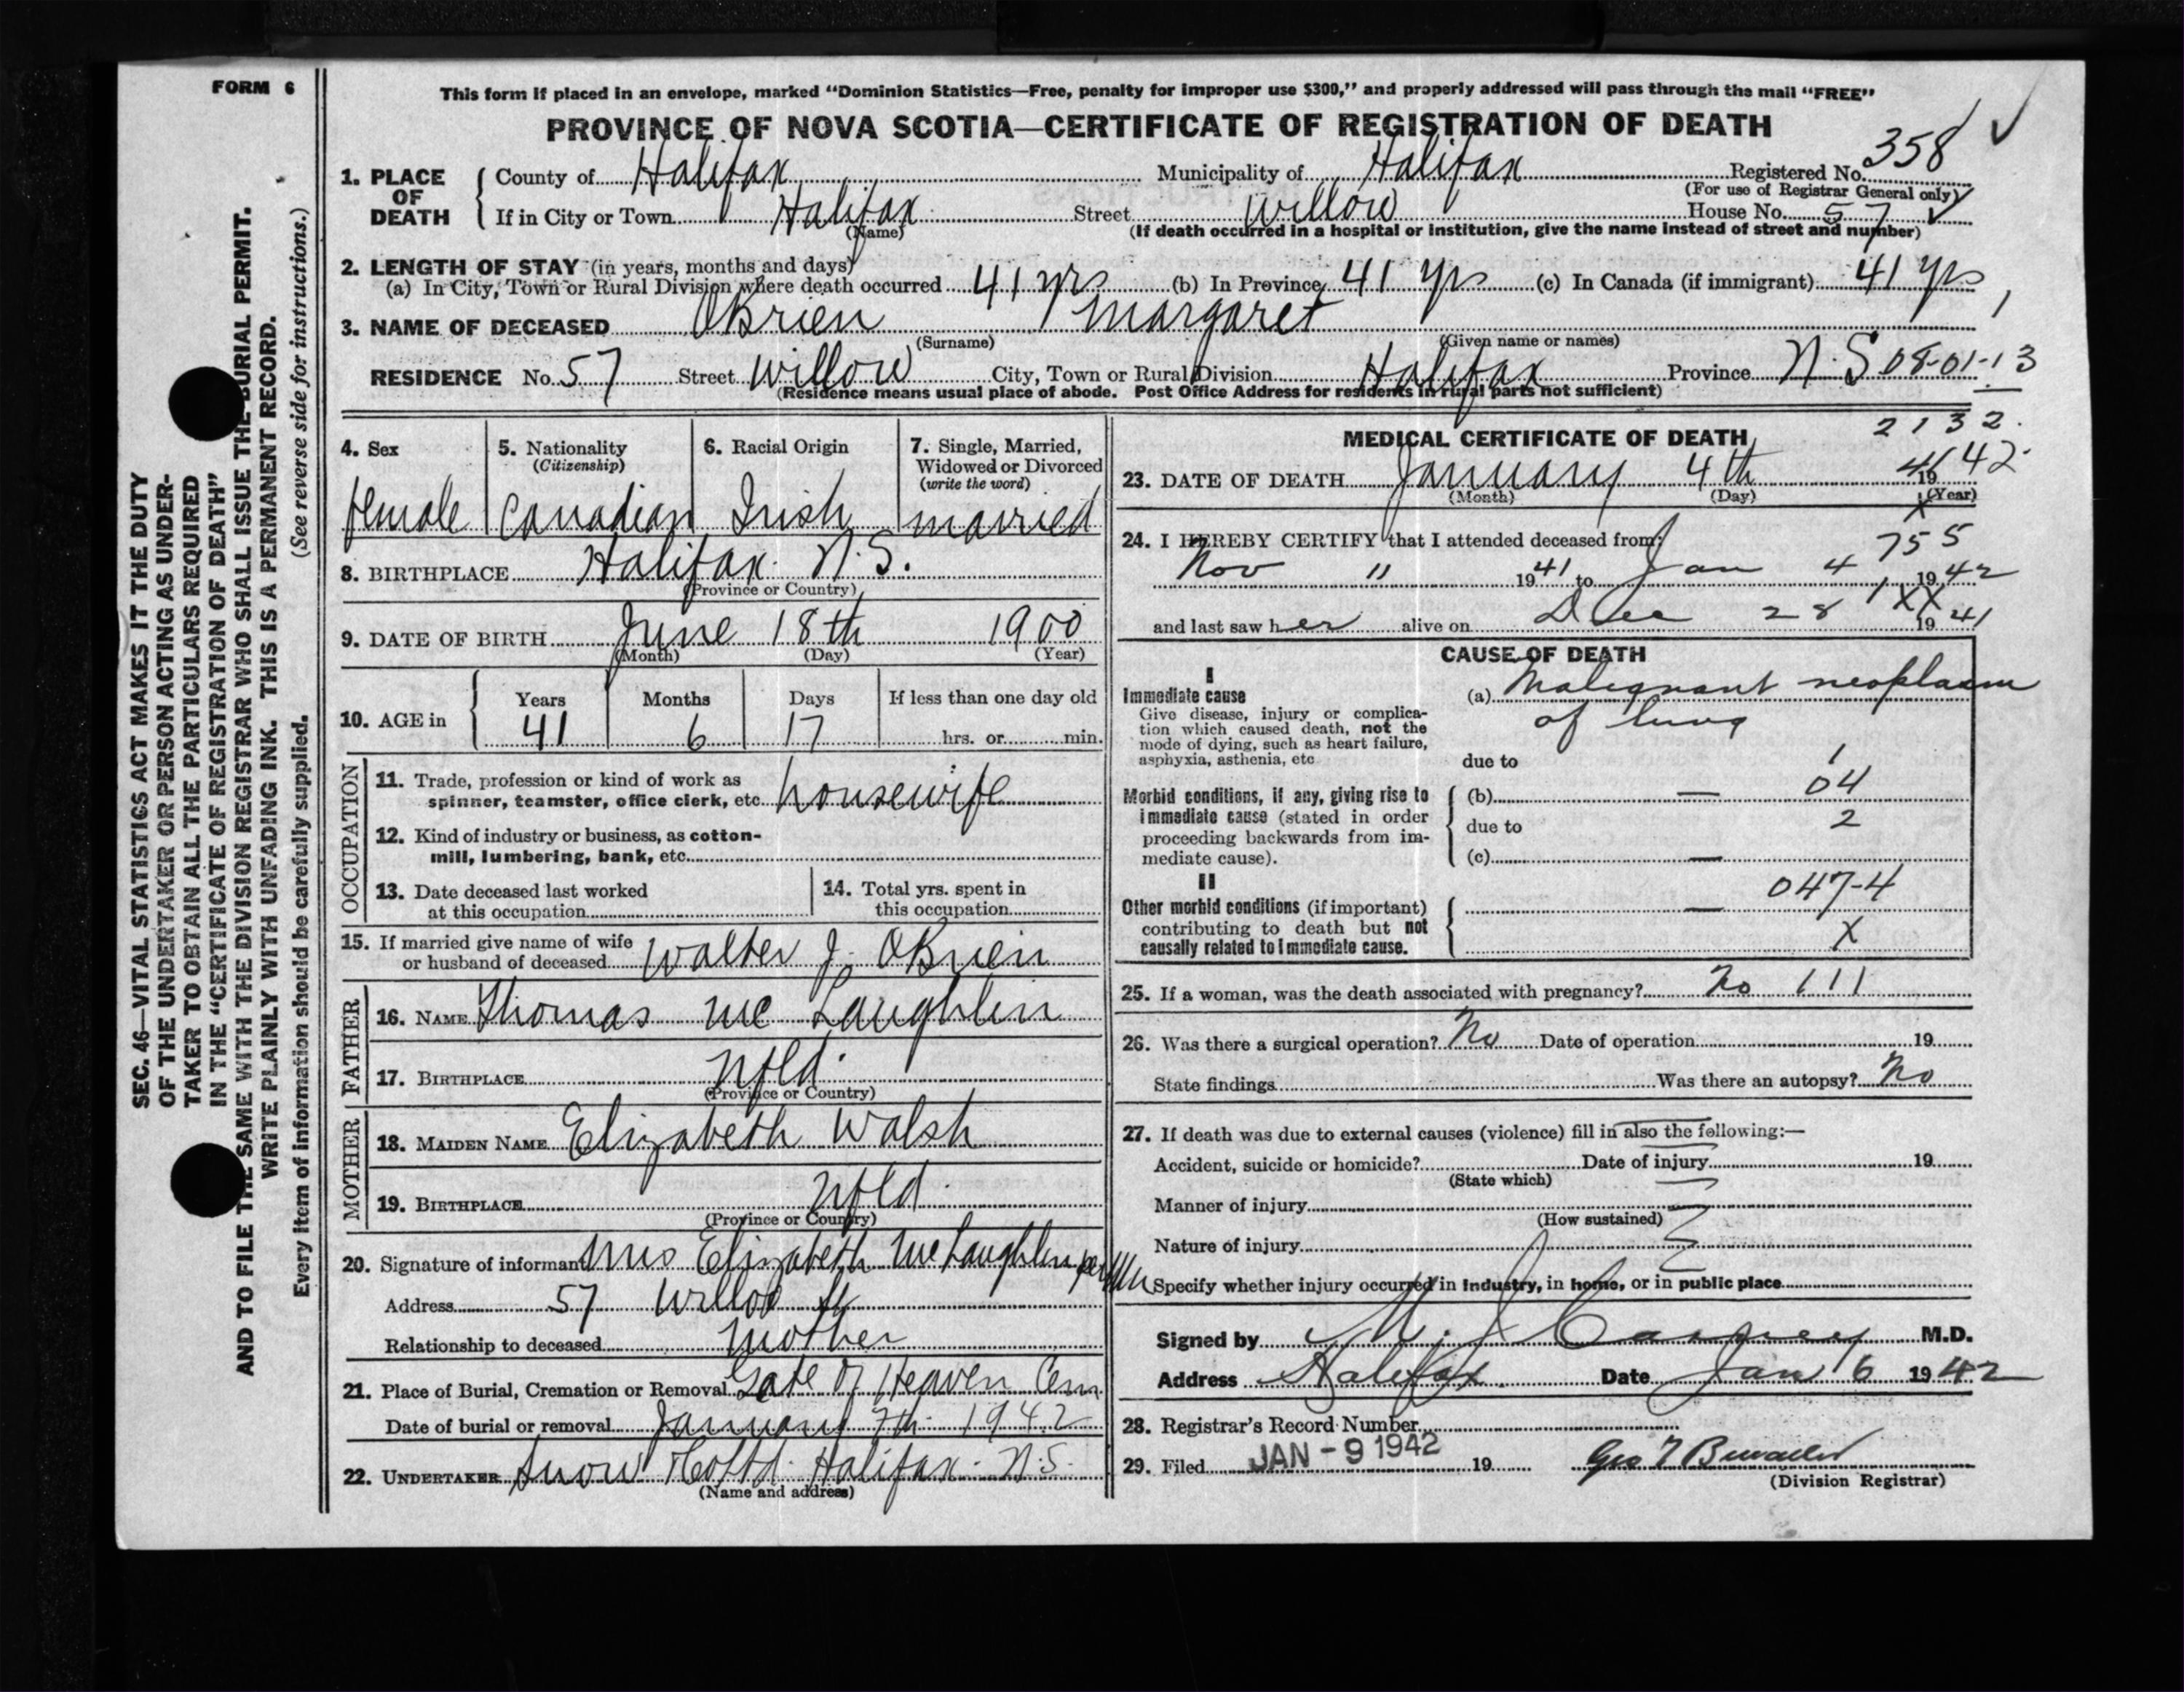 FORM 6
This form if placed in an envelope, marked “Dominion Statistics—Free, penalty for improper use $300,” and properly addressed will pass through the mail “FREE”
PROVINCE OF NOVA SCOTIA—CERTIFICATE OF REGISTRATION OF DEATH
358 ✓
1. PLACE OF DEATH { County of Halifax Municipality of Halifax Registered No.
(For use of Registrar General only)
If in City or Town Halifax Street Willow House No. 57 ✓
(Name) (If death occurred in a hospital or institution, give the name instead of street and number)
2. LENGTH OF STAY (in years, months and days)
(a) In City, Town or Rural Division where death occurred 41 yrs (b) In Province 41 yrs (c) In Canada (if immigrant) 41 yrs
3. NAME OF DECEASED OBrien Margaret
(Surname) (Given name or names)
RESIDENCE No. 57 Street Willow City, Town or Rural Division Halifax Province N.S 08-01-13
(Residence means usual place of abode. Post Office Address for residents in rural parts not sufficient)
4. Sex 5. Nationality 6. Racial Origin 7. Single, Married,
(Citizenship) Widowed or Divorced
(write the word)
female Canadian Irish married
8. BIRTHPLACE Halifax. N.S.
(Province or Country)
9. DATE OF BIRTH June 18th 1900
(Month) (Day) (Year)
10. AGE in { Years Months Days If less than one day old
41 6 17 hrs. or min.
OCCUPATION
11. Trade, profession or kind of work as
spinner, teamster, office clerk, etc. housewife
12. Kind of industry or business, as cotton-
mill, lumbering, bank, etc.
13. Date deceased last worked 14. Total yrs. spent in
at this occupation this occupation
15. If married give name of wife
or husband of deceased Walter J. OBrien
FATHER
16. NAME Thomas Mc Laughlin
17. BIRTHPLACE Nfld.
(Province or Country)
MOTHER
18. MAIDEN NAME Elizabeth Walsh
19. BIRTHPLACE Nfld.
(Province or Country)
20. Signature of informant Mrs Elizabeth McLaughlin per
Address 57 Willow St
Relationship to deceased Mother
21. Place of Burial, Cremation or Removal Gate of Heaven Cem.
Date of burial or removal January 7th 1942
22. UNDERTAKER Snow Halifax. N.S.
(Name and address)
2132.
MEDICAL CERTIFICATE OF DEATH
23. DATE OF DEATH January 4th 19 42
(Month) (Day) (Year)
24. I HEREBY CERTIFY that I attended deceased from:
755
Nov 11 1941 to Jan 4 1942
and last saw her alive on Dec 28 19 41
CAUSE OF DEATH
I
Immediate cause (a) Malignant neoplasm
Give disease, injury or complica- of lung
tion which caused death, not the
mode of dying, such as heart failure,
asphyxia, asthenia, etc. due to 1
Morbid conditions, if any, giving rise to (b) — 04
immediate cause (stated in order due to 2
proceeding backwards from im-
mediate cause). (c) —
II
047-4
Other morbid conditions (if important) —
contributing to death but not X
causally related to immediate cause.
25. If a woman, was the death associated with pregnancy? No 111
26. Was there a surgical operation? No Date of operation 19
State findings Was there an autopsy? No
27. If death was due to external causes (violence) fill in also the following:—
Accident, suicide or homicide? Date of injury 19
(State which)
Manner of injury
(How sustained)
Nature of injury
Specify whether injury occurred in industry, in home, or in public place
Signed by M. J. M.D.
Address Halifax. Date Jan 6 1942
28. Registrar's Record Number
29. Filed JAN - 9 1942 19 Geo
(Division Registrar)
SEC. 46—VITAL STATISTICS ACT MAKES IT THE DUTY
OF THE UNDERTAKER OR PERSON ACTING AS UNDER-
TAKER TO OBTAIN ALL THE PARTICULARS REQUIRED
IN THE “CERTIFICATE OF REGISTRATION OF DEATH”
AND TO FILE THE SAME WITH THE DIVISION REGISTRAR WHO SHALL ISSUE THE BURIAL PERMIT.
WRITE PLAINLY WITH UNFADING INK. THIS IS A PERMANENT RECORD.
Every item of information should be carefully supplied. (See reverse side for instructions.)